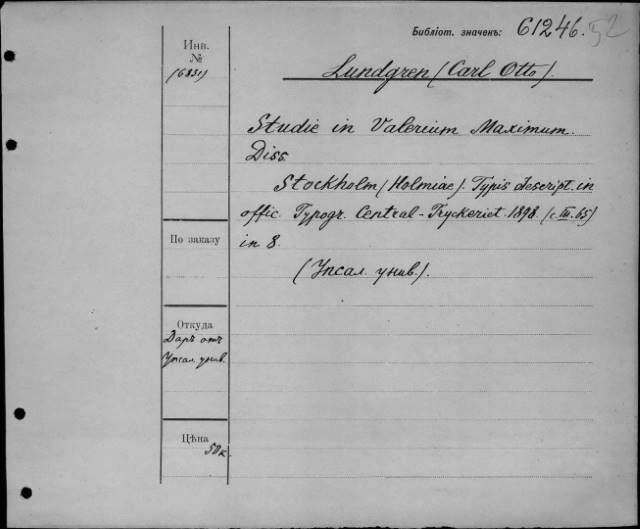 Библіот. значекъ: 61246. 52
Инв.
№
(6831)
Lundgren (Carl Otto).
Studie in Valerium Maximum.
Diss.
Stockholm (Holmiae). Typis descript. in
offic. Typogr. Central-Tryckeriet. 1898. (c. III. 65)
in 8.
По заказу
(Упсал. унив.).
Откуда
Даръ отъ
Упсал. унив.
Цѣна
50 к.